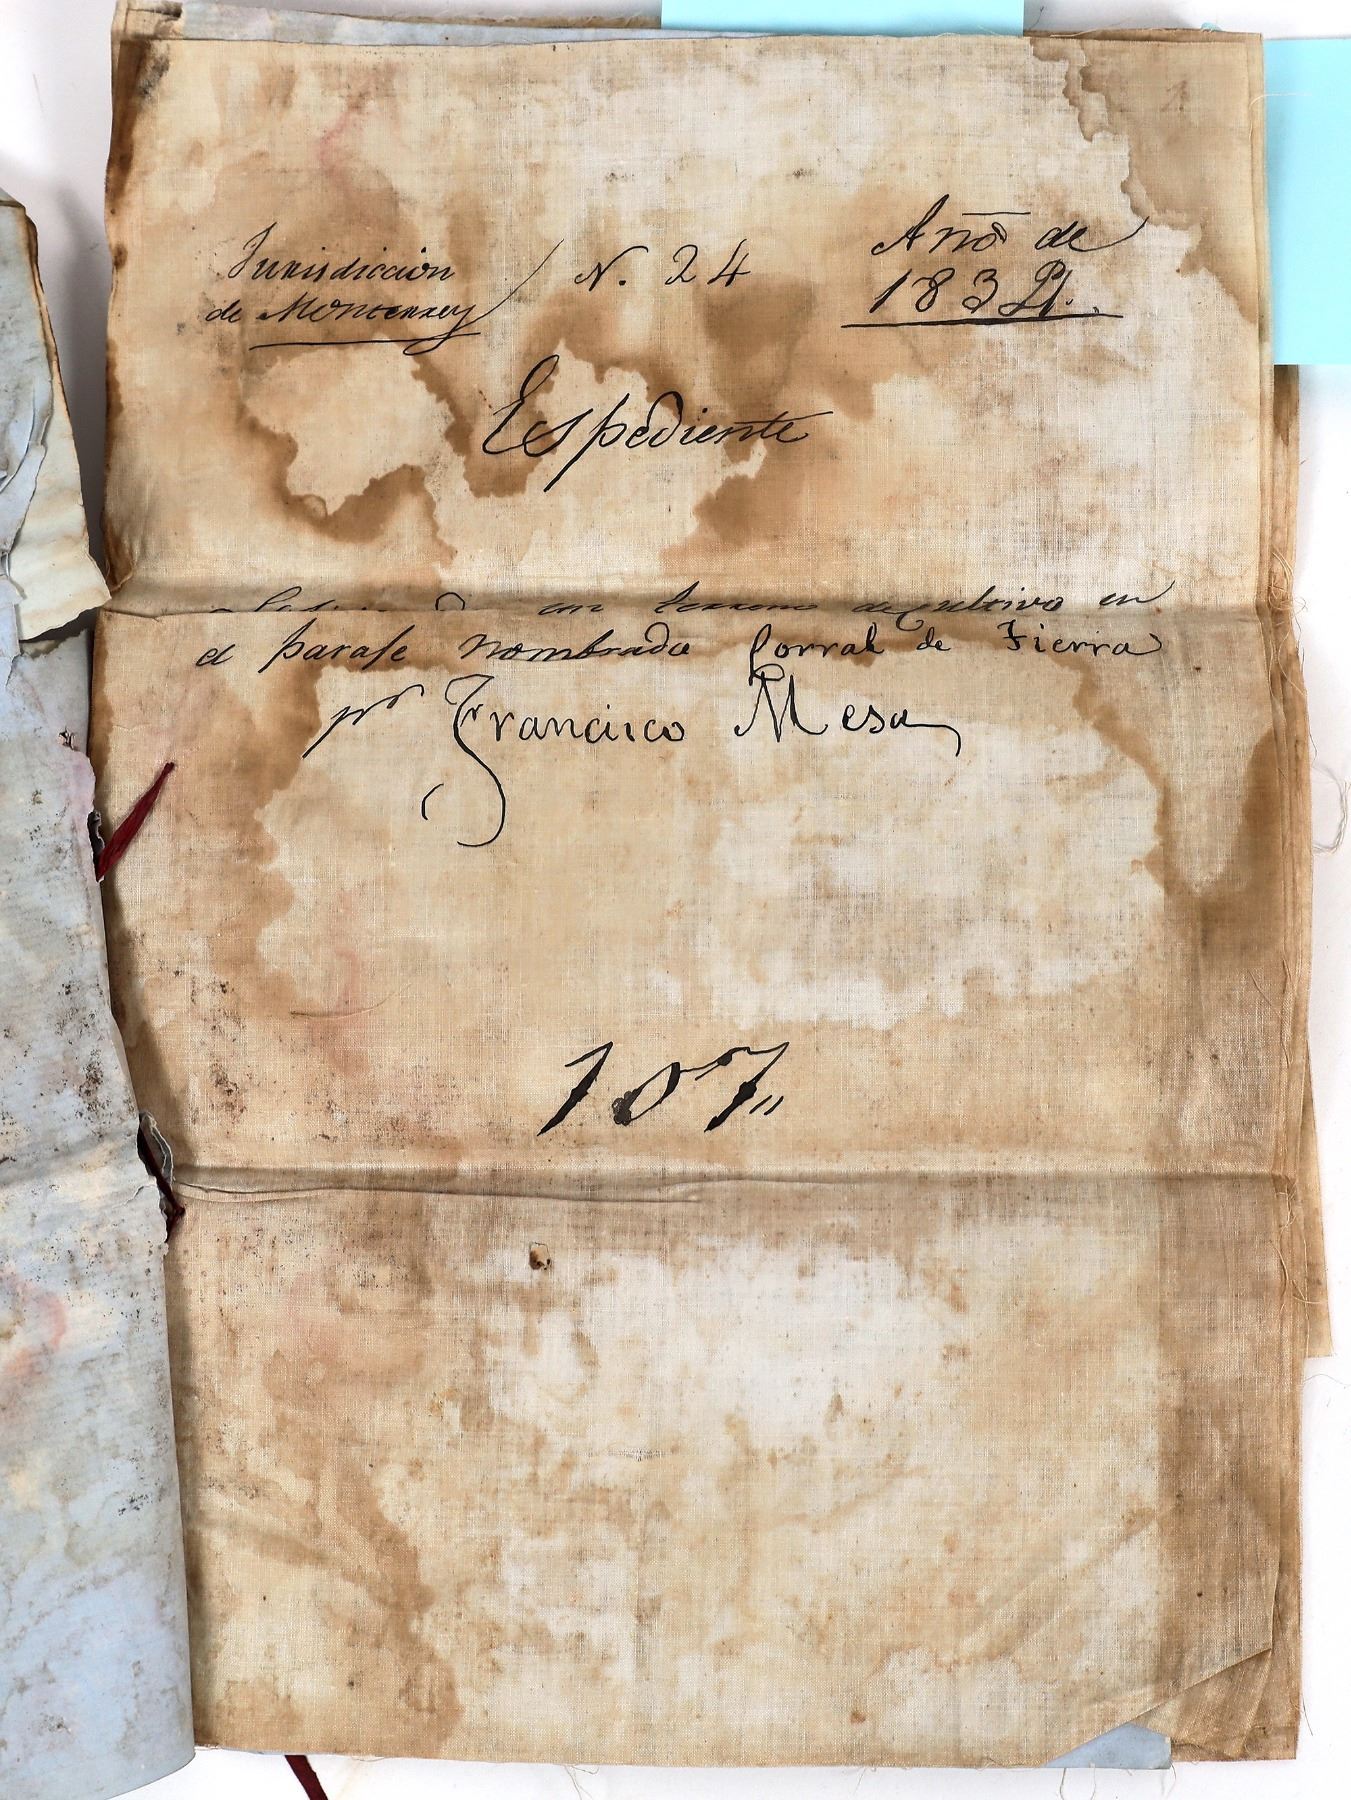 Jurisdiccion
de Monterrey
N. 24
Año de
183
Espediente
un terreno de cultivo en
el paraje nombrado Corral de Tierra
pr Francisco Mesa
107